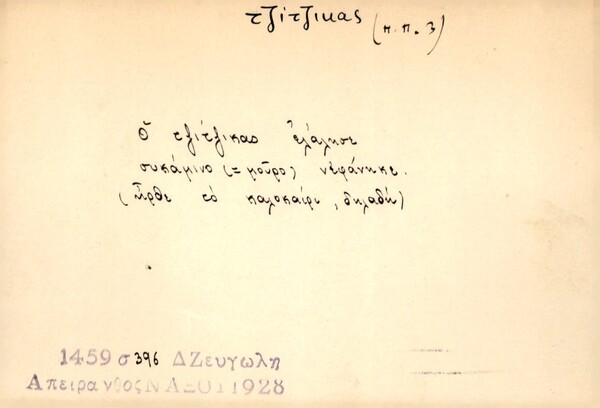 τζίτζικας (π.π. 3)
Ὁ τζίτζικας ἐλάλησε
συκάμινο (= μοῦρο) νεφάνηκε.
(ἦρθε τό καλοκαίρι, δηλαδή)
1459 σ 396 Δ Ζευγώλη
Απειρανθος ΝΑΞΟΥ 1928